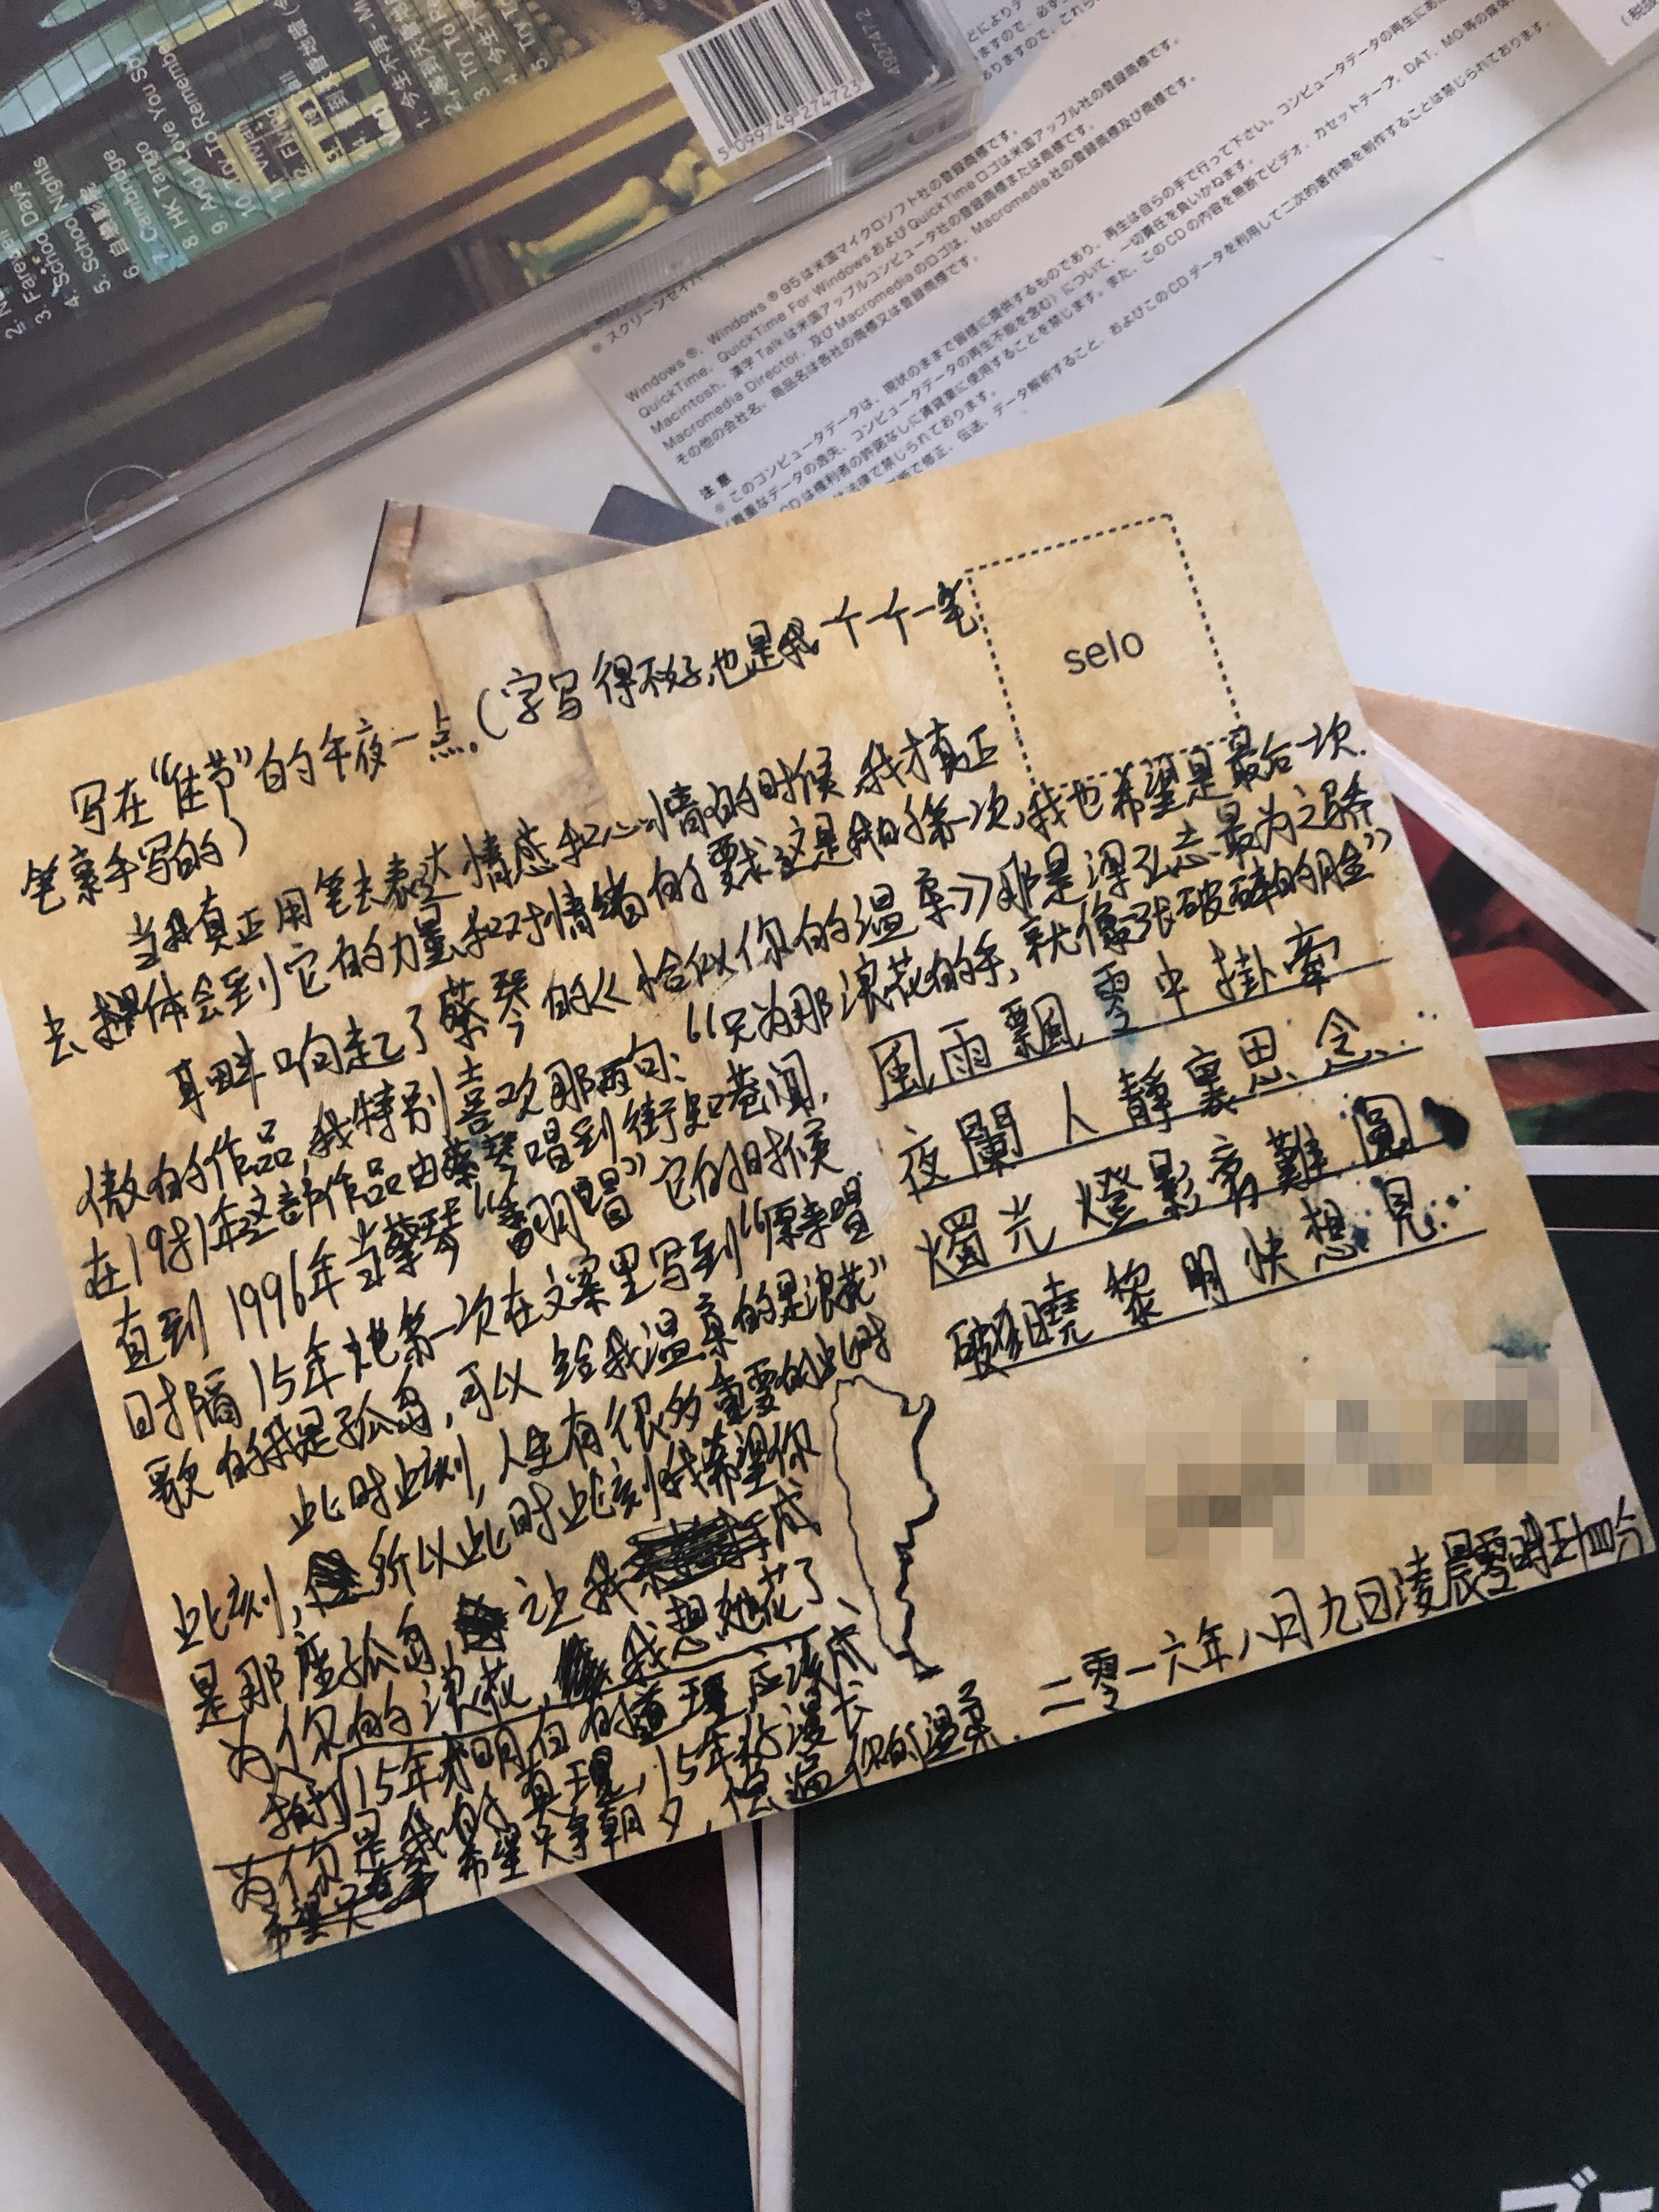 2. N
3. Farewell
4. School Days
5. School Nights
6. 自
7. Cambridge
8. HK Tango
9. And I Love You So
10. Try To Remember
11. Vivian
12. Flying
1. 今生不再 - M
3. Try To Re
4. 今生不
5. Try To
5 099749 274723
492747 2
※ スクリーンセイバー
Windows®、Windows®95は米国マイクロソフト社の登録商標です。
QuickTime、QuickTime For WindowsおよびQuickTimeロゴは米国アップル社の登録商標です。
Macintosh、漢字Talkは米国アップルコンピュータ社の登録商標または商標です。
Macromedia Director、及びMacromediaのロゴは、Macromedia社の登録商標及び商標です。
その他の会社名、商品名は各社の商標又は登録商標です。
注意
※このコンピュータデータは、現状のままで皆様に提供するものであり、再生は自らの手で行って下さい。コンピュータデータの再生にあ
データの逸失、コンピュータデータの再生不能を含む)について、一切責任を負いかねます。
CDは権利者の許諾なしに賃貸業に使用することを禁じます。また、このCDの内容を無断でビデオ、カセットテープ、DAT、MO等の媒体
は法律で禁じられております。
断で修正、伝送、データ解析すること、およびこのCDデータを利用して二次的著作物を制作することは禁じられております。
selo
写在“佳节”的午夜一点。(字写得不好,也是我一个个一笔
笔亲手写的)
当我真正用笔去表达情感和心情的时候,我才真正
去体会到它的力量和对情绪的要求这是我的第一次,我也希望是最后一次.
耳畔响起了蔡琴的《恰似你的温柔》那是梁弘志最为之骄
傲的作品,我特别喜欢那两句:“只为那浪花的手,就像一张破碎的脸”
在1981年这部作品由蔡琴唱到街知巷闻,
直到1996年当蔡琴“翻唱”它的时候
时隔15年她第一次在文案里写到“原来唱
歌的我是孤岛,可以给我温柔的是浪花”
此时此刻,人生有很多重要的此时
此刻,所以此时此刻我希望你
是那座孤岛,让我成
为你的浪花,我想她花了
15年才明白的道理应该成
为你是我的真理,15年很漫长
希望只争朝夕,偿还你的温柔.
風雨飄零中掛牽
夜闌人靜裏思念...
燭光燈影离難圓
破曉黎明快想見...
二零一六年八月九日凌晨零時五十四分